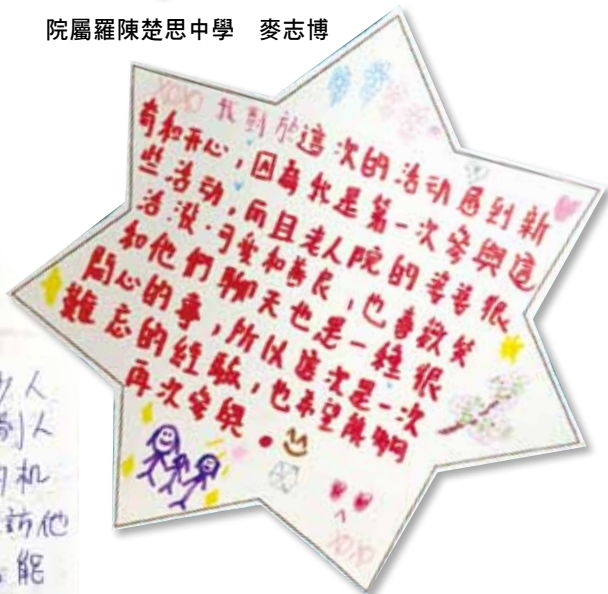 院屬羅陳楚思中學 麥志博
XOXO 我對於這次的活动感到新
奇和开心，因為我是第一次參與這
些活动，而且老人院的婆婆很
活潑．可愛和善良，也喜歡笑
和他們聊天也是一種很
開心的事，所以這次是一次
難忘的經驗，也希望能夠
再次參與。
XOXO
少人
別人
机
訪他
能